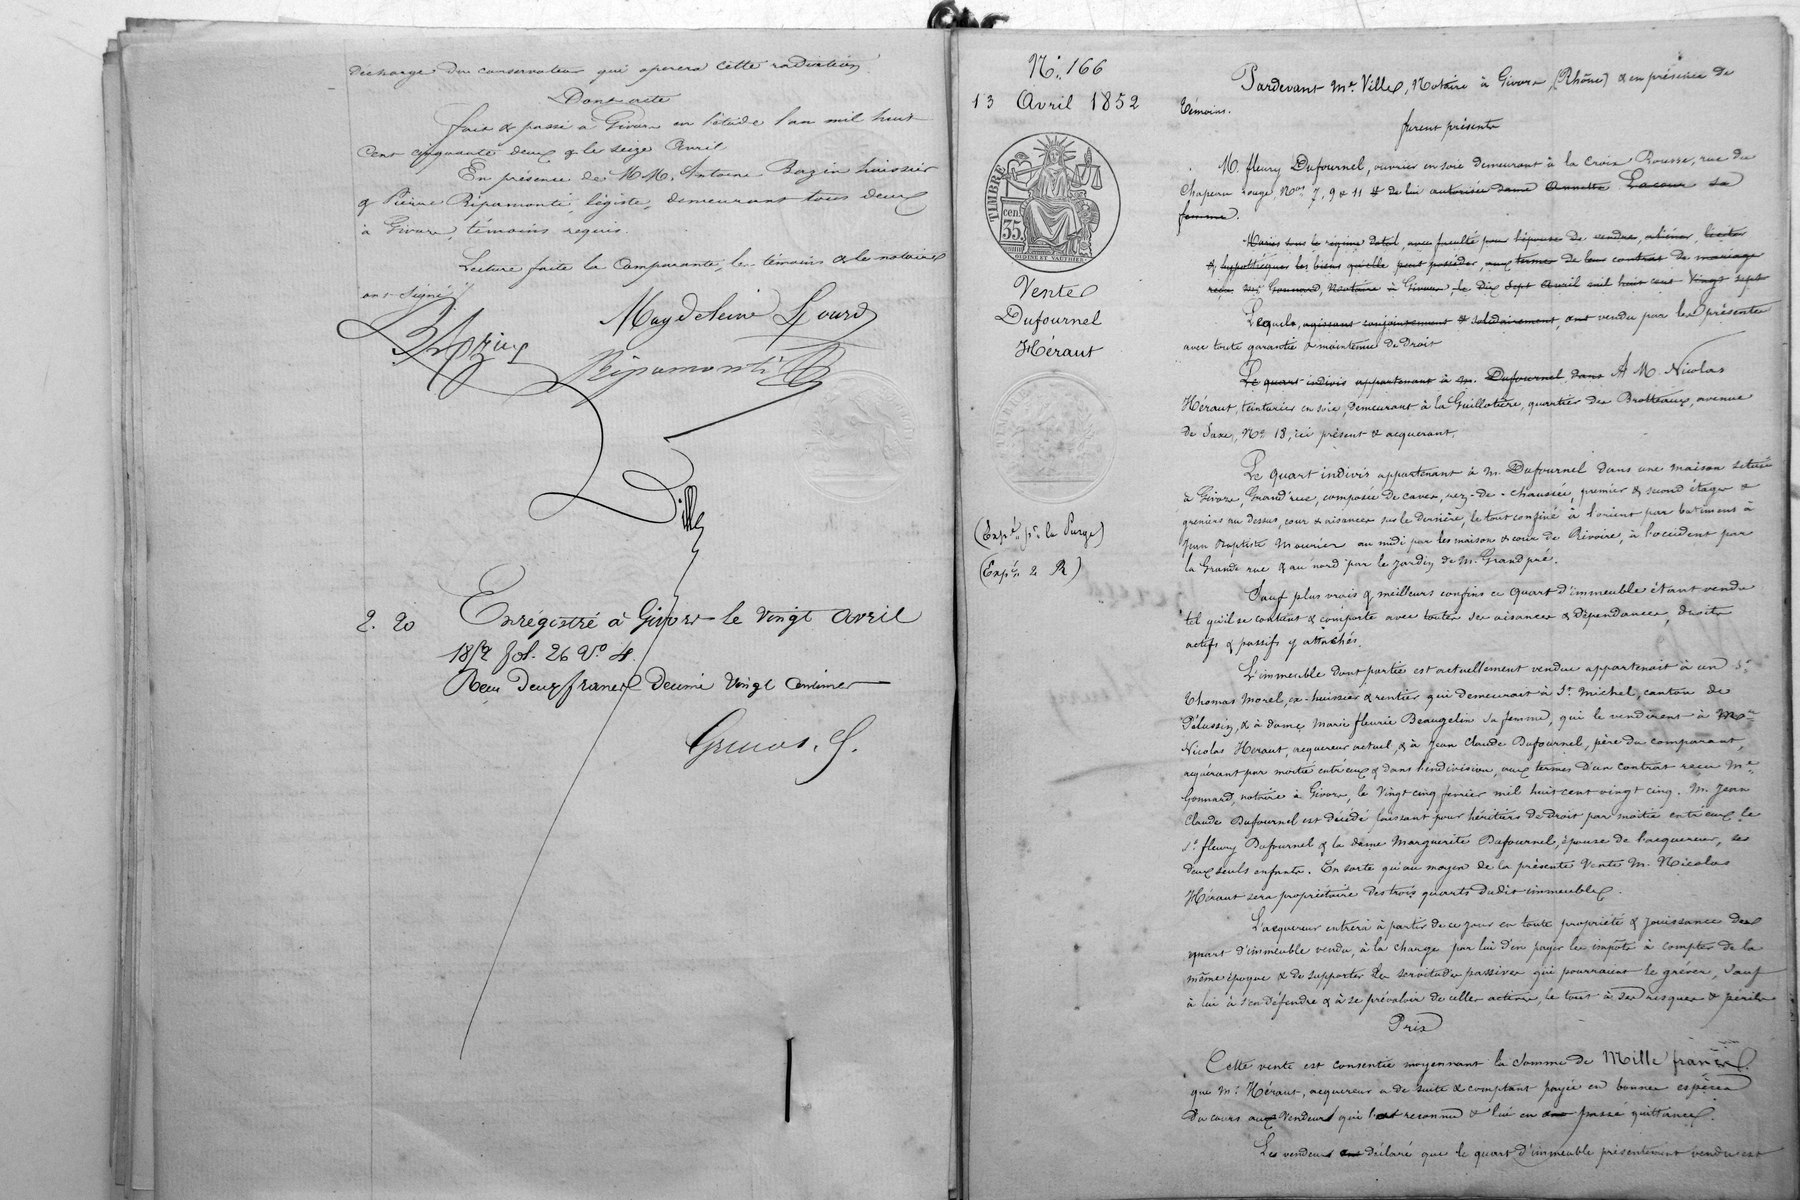 décharge du conservateur qui opèrera cette radiation
Dont acte
fait & passé à Givors en l'étude l'an mil huit
cent cinquante deux & le seize Avril
En présence de M.M. Antoine Bazin huissier
& Pierre Ripamonti, légiste, demeurant tous deux
à Givors, témoins requis.
Lecture faite la Comparante, les témoins & le notaire
ont signé
Magdeleine
Bazin
Ripamonti
Ville
2. 20
Enrégistré à Givors le vingt avril
1852 fol. 26 Vo 4.
Reçu Deux francs Decime Vingt Centimes
N° 166
13 Avril 1852
TIMBRE
35 cen.
Vente
Dufournel
Héraut
(Expé. pr. la Purge)
(Expé. 2 R)
Pardevant Me Ville, Notaire à Givors (Rhône) & en présence de
témoins.
furent présents
M. fleury Dufournel, ouvrier en soie demeurant à la Croix Rousse, rue du
Chapeau rouge Nos 7, 9 & 11 & de lui autorisée dame Annette Lacour sa
femme.
Mariés sous le régime dotal, avec faculté pour l'épouse de vendre, aliéner,
& hypothéquer les biens qu'elle peut posséder, aux termes de leur contrat de mariage
reçu Me Gonnard, Notaire à Givors, le Dix Sept Avril mil huit cent Vingt sept
Lequels, agissant conjointement & solidairement, ont vendu par les présentes
avec toute garantie & maintenue de Droit
Le quart indivis appartenant à M. Dufournel dans A M. Nicolas
Héraut, teinturier en soie, demeurant à la Guillotière, quartier des Brotteaux, avenue
de Saxe, No 18, ici présent & acquérant,
Le quart indivis appartenant à M. Dufournel dans une maison située
à Givors, Grand'rue, composée de caves, rez-de-chaussée, premier & second étages &
greniers au dessus, cour & aisances sur le derrière, le tout confiné à l'orient par batiment à
Jean Baptiste Mourier au midi par les maison & cour de Rivoire, à l'occident par
la Grande rue & au nord par le jardin de M. Grandpré.
Sauf plus vrais & meilleurs confins ce quart d'immeuble étant vendu
tel qu'il se contient & comporte avec toutes ses aisances & dépendances, droits
actifs & passifs y attachés.
L'immeuble dont partie est actuellement vendue appartenait à un Sr
Thomas Morel, ex-huissier & rentier qui demeurait à St Michel, canton de
Pélussin, & à dame Marie fleurie Beaugelin sa femme, qui le vendirent à Mr
Nicolas Héraut, acquéreur actuel, & à Jean Claude Dufournel, père du comparant,
acquérant par moitié entr'eux & dans l'indivision, aux termes d'un contrat reçu Me
Gonnard, notaire à Givors, le Vingt cinq fevrier mil huit cent vingt cinq. M. Jean
Claude Dufournel est décédé laissant pour héritiers de Droit par moitié entr'eux le
Sr fleury Dufournel & la dame Marguerite Dufournel, épouse de l'acquéreur, ses
deux seuls enfants. En sorte qu'au moyen de la présente Vente M. Nicolas
Héraut sera propriétaire des trois quarts dudit immeuble.
L'acquereur entrera à partir de ce jour en toute propriété & jouissance du
quart d'immeuble vendu, à la charge par lui d'en payer les impôts à compter de la
même époque & de supporter les servitudes passives qui pourraient le gréver, sauf
à lui à s'en défendre & à se prévaloir de celles actives, le tout à ses risques & périls
Prix
Cette vente est consentie moyennant la Somme de Mille francs.
que Mr Héraut, acquereur a de suite & comptant payée en bonnes espèces
du cours aux Vendeur qui l'a reconnu & lui en passe quittance.
Les vendeur ont déclaré que le quart d'immeuble présentement vendu est